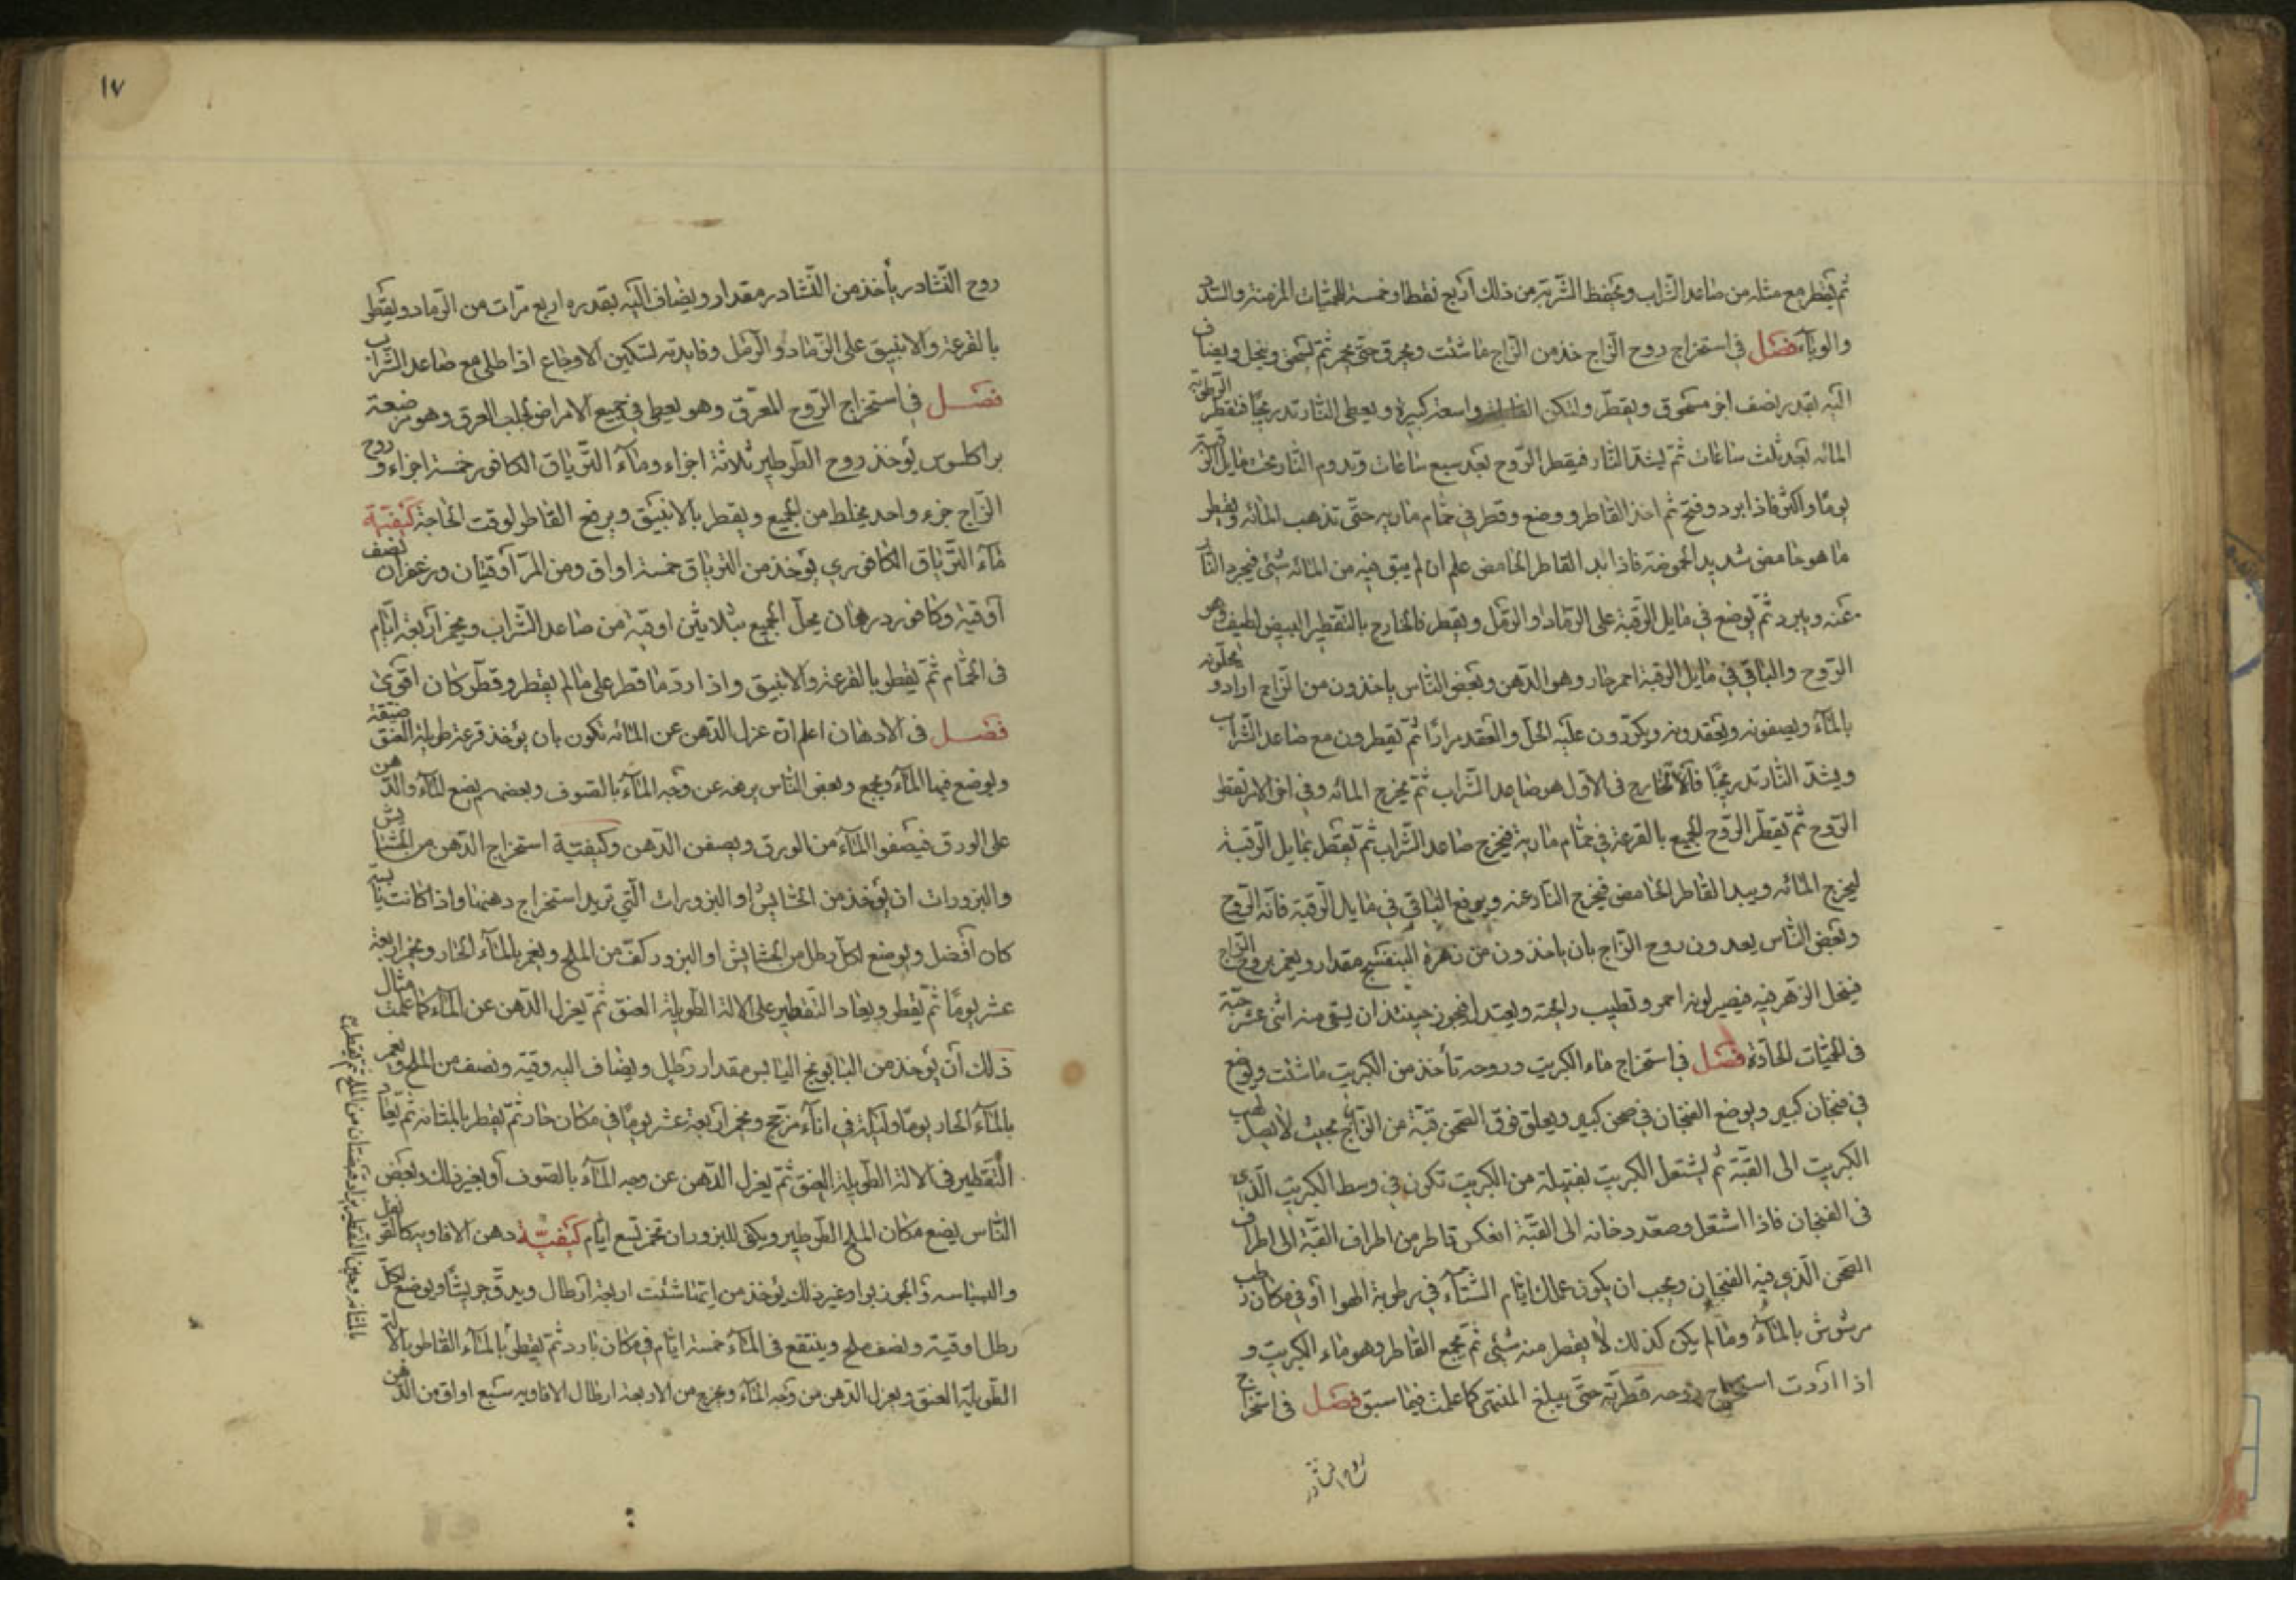 ثم يقطر مع مثله من صاعد الشراب ويحفظ الشربة من ذلك اربع نقط او خمسة للحميات المزمنة والسدد
والوبآء فصل في استخراج روح الزاج خذ من الزاج ما شئت ويحرق حتى يحمر ثم يسحق وينخل ويضاف
اليه بقدر نصف اجر مسحوق ويقطر ولتكن القابلة واسعة كبيرة ويعطى النار تدريجيا فتقطر الرطوبة
المائه بعد ثلث ساعات ثم يشد النار فيقطر الروح بعد سبع ساعات وتدوم النار تحت مايل الرقبة
يوما واكثر فاذا برد وفتح ثم اخذ القاطر ووضع وقطر في حمام ماريه حتى تذهب المائه ويقطر
ما هو حامض شديد الحموضة فاذا بدا القاطر الحامض علم ان لم يبق فيه من المائه شئي فيخرج النار
عنه ويبرد ثم يوضع في مايل الرقبة على الرماد او الرمل ويقطر فالخارج بالتقطير ابيض لطيف وهو
الروح والباقي في مايل الرقبة احمر حار وهو الدهن وبعض الناس ياخذون من الزاج ارادو يحلونه
بالمآء ويصفونه ويعقدونه ويكررون عليه الحل والعقد مرارا ثم يقطرون مع صاعد الشراب
ويشد النار تدريجيا فالخارج في الاول هو صاعد الشراب ثم يخرج المائه وفي اخر الامر يقطر
الروح ثم يقطر الروح الجميع بالقرعة في حمام مارية فيخرج صاعد الشراب ثم يقطر بمايل الرقبة
ليخرج المائه ويبدا القاطر الحامض فيخرج النار عنه ويرفع الباقي في مايل الرقبة فانه الروح
وبعض الناس يعدون روح الزاج بان ياخذون من زهرة البنفسج مقدار ويغمر بروح الزاج
فينحل الزهر فيه فيصير لونه احمر وتطيب رائحته ويعتد فيجوز حينئذ ان يسقى منه اثنى عشر حبة
في الحميات الحادة فصل في استخراج ماء الكبريت وروحه تأخذ من الكبريت ما شئت ويوضع
في فنجان كبير ويوضع الفنجان في صحن كبير ويعلق فوق الصحن قبة من الزجاج بحيث لا يصل لهب
الكبريت الى القبة ثم يشتعل الكبريت بفتيلة من الكبريت تكون في وسط الكبريت الذي
في الفنجان فاذا اشتعل وصعد دخانه الى القبة انعكس قاطر من اطراف القبة الى اطراف
الصحن الذي فيه الفنجان ويجب ان يكون عملك ايام الشتآء في رطوبة الهوا او في مكان رطب
مرشوش بالمآء وما لم يكن كذلك لا يقطر منه شئي ثم يجمع القاطر وهو ماء الكبريت و
اذا اردت استخراج روحه قطرته حتى يبلغ المنتهى كما علمت فيما سبق فصل في استخراج
روح النشادر
١٧
روح النشادر يأخذ من النشادر مقدار ويضاف اليه بقدره اربع مرات من الرماد ويقطر
بالقرعة والانبيق على الرماد او الرمل وفايدته لتسكين الاوجاع اذا طلى مع صاعد الشراب
فصل في استخراج الروح المعرق وهو يعطى في جميع الامراض لجلب العرق وهو من صنعة
براكلسوس يؤخذ روح الطرطير ثلاثة اجزاء ومآء الترياق الكافور خمسة اجزاء وروح
الزاج جزء واحد يخلط من الجميع ويقطر بالانبيق ويرفع القاطر لوقت الحاجة كيفية
مآء الترياق الكافوري يؤخذ من الترياق خمسة اواق ومن المر اوقيتان وزعفران نصف
اوقية وكافور درهمان يحل الجميع بثلاثين اوقية من صاعد الشراب ويخمر اربعة ايام
في الحمام ثم يقطر بالقرعة والانبيق واذا رد ما قطر على ما لم يقطر وقطر كان اقوى
فصل في الادهان اعلم ان عزل الدهن عن المائه تكون بان يؤخذ قرعة طويلة العنق ضيقة
ويوضع فيها المآء ويجمع وبعض الناس يرفعه عن وجه المآء بالصوف وبعضهم يضع المآء والدهن
على الورق فيصفو المآء من الورق ويصفى الدهن وكيفية استخراج الدهن من الحشايش
والبزورات ان يؤخذ من الحشايش او البزورات التي تريد استخراج دهنها واذا كانت يابسة
كان افضل ويوضع لكل رطل من الحشايش او البزور كف من الملح ويغمر بالمآء الحار ويخمر اربعة
عشر يوما ثم يقطر ويعاد التقطير على الالة الطويلة العنق ثم يعزل الدهن عن المآء كما علمت مثال
ذلك ان يؤخذ من البابونج اليابس مقدار رطل ويضاف اليه وقية ونصف من الملح ويغمر
بالمآء الحار يوما وليلة في انآء مزجج ويخمر اربعة عشر يوما في مكان حار ثم يقطر بالمثانه ثم يعاد
التقطير في الالة الطويلة العنق ثم يعزل الدهن عن وجه المآء بالصوف او بغير ذلك وبعض
الناس يضع مكان الملح الطرطير ويكفي للبزوران تخمر تسع ايام كيفية دهن الافاويه كالقرنفل
والبسباسه والجوزبوا وغير ذلك يؤخذ من ايها شئت اربعة ارطال ويدق جريشا ويوضع لكل
رطل اوقية ونصف ملح وينتقع في المآء خمسة ايام في مكان بارد ثم يقطر بالمآء القاطر بالالة
الطويلة العنق ويعزل الدهن من وجه المآء ويخرج من الاربعة ارطال الافاويه سبع اواق من الدهن
بالمثانه وحين التقطير يزاد قبضتان من الملح ثم يقطر